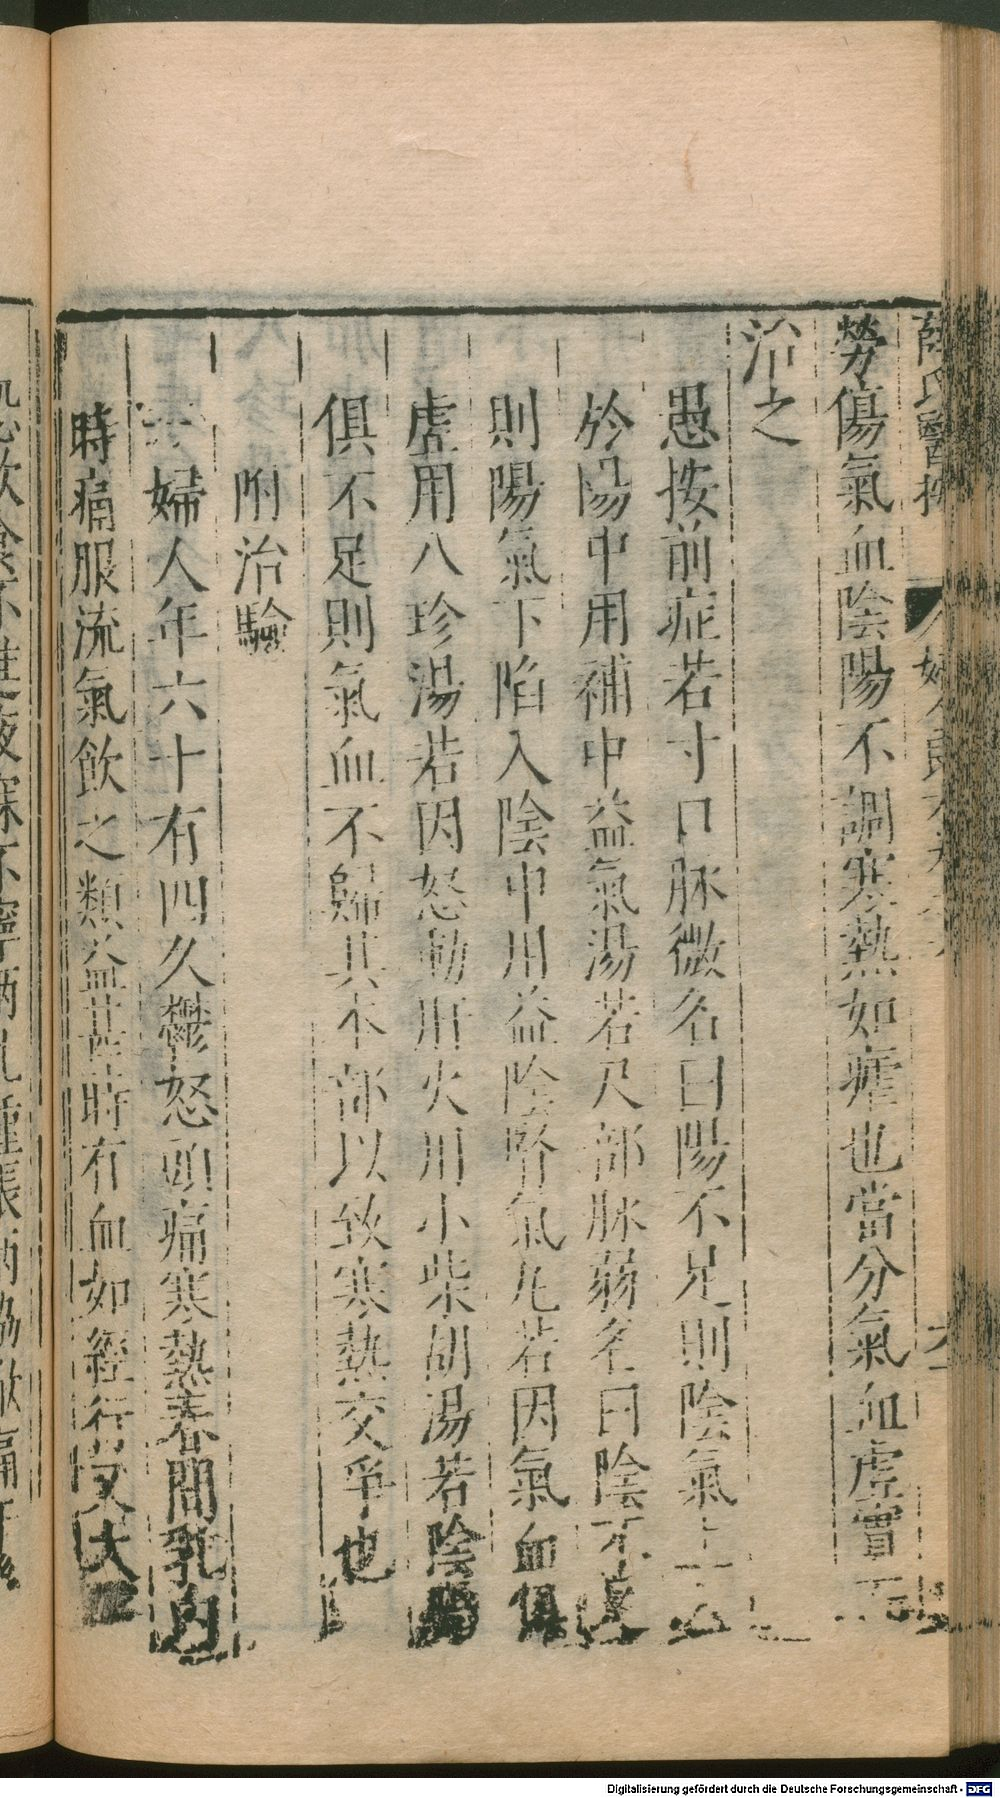 薛氏醫按
婦人良方卷之六
勞傷氣血陰陽不調寒熱如瘧也當分氣血虛實而
治之
愚按前症若寸口脉微名曰陽不足則陰氣上入
於陽中用補中益氣湯若尺部脉弱名曰陰不足
則陽氣下陷入陰中用益陰腎氣丸若因氣血俱
虛用八珍湯若因怒動肝火用小柴胡湯若陰陽
俱不足則氣血不歸其本部以致寒熱交爭也
附治驗
一婦人年六十有四久鬱怒頭痛寒熱春間乳內
時痛服流氣飲之類益甚時有血如經行又大
飲食不進夜寐不寧兩乳腫脹兩脇
Digitalisierung gefördert durch die Deutsche Forschungsgemeinschaft - DFG